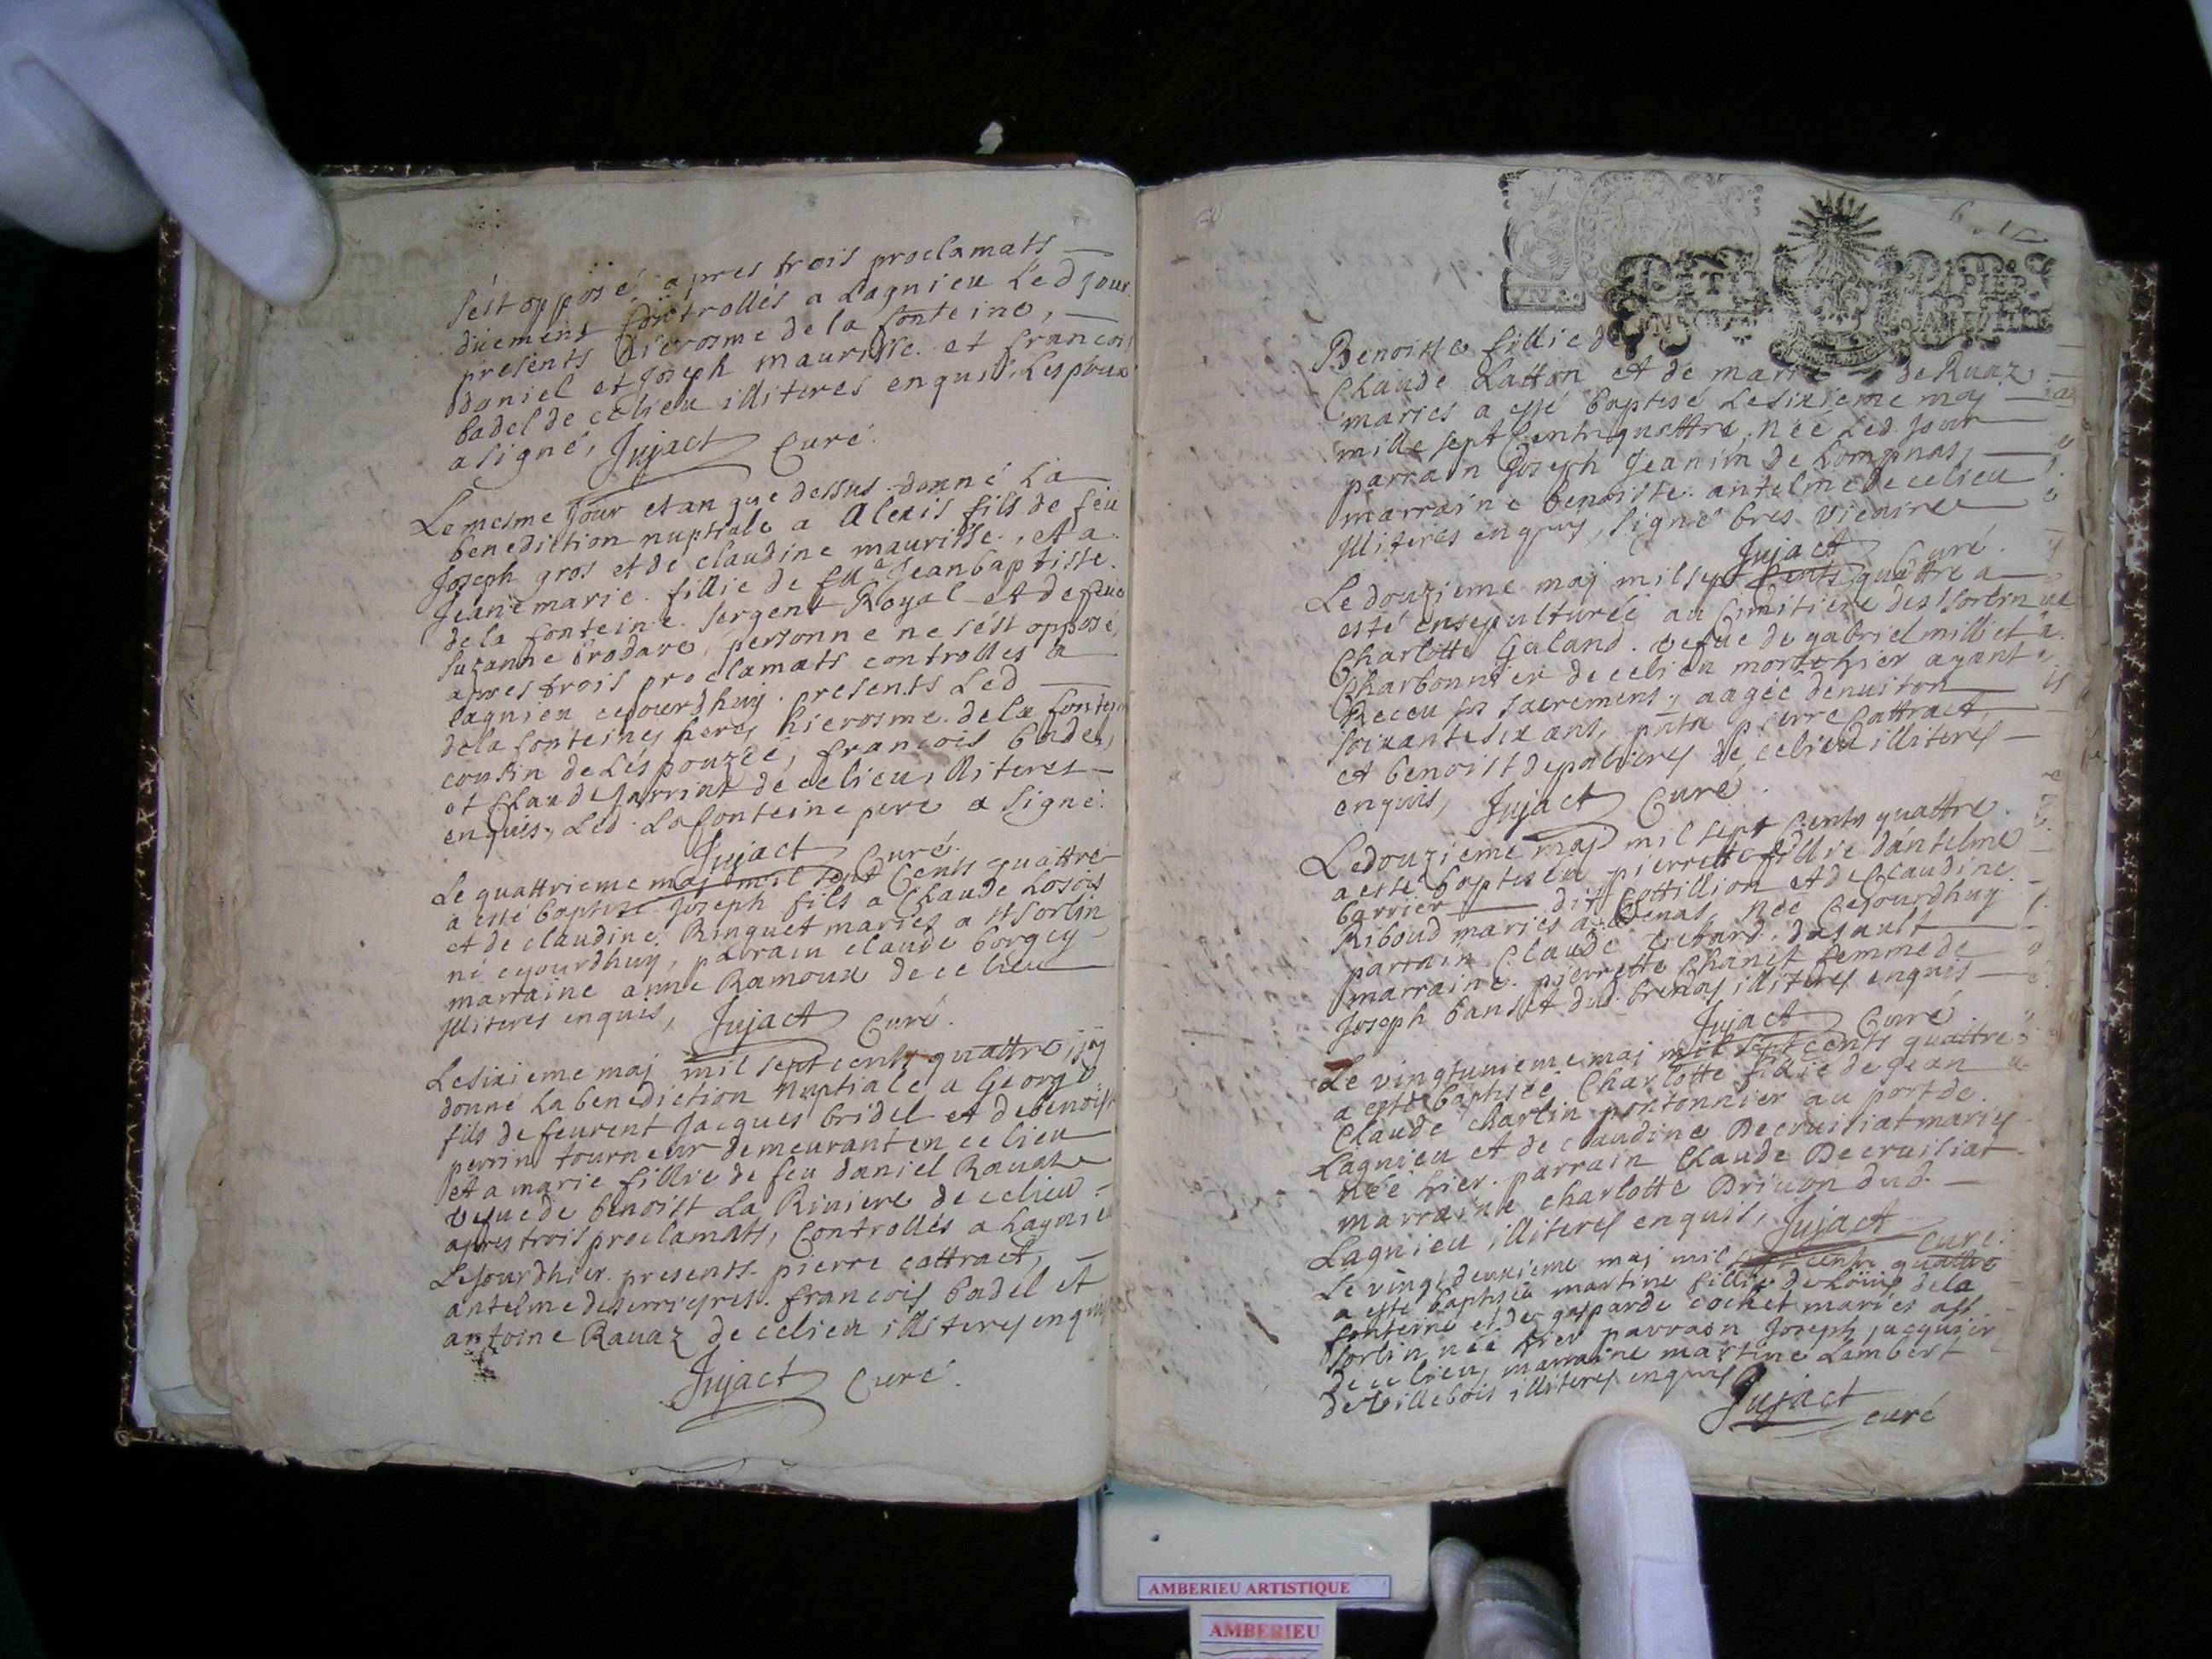 s'est opposé apres trois proclamats
duement controllés a Lagnieu Led Jour
presents hierosme de la fonteine,
daniel et Joseph maurisse et francois
badel de ce lieu illiteres enquis, Lespoux
a signé, Jujact Curé.
Le mesme Jour et an que dessus donné La
benediction nuptiale a Alexis fils de feu
Joseph gros et de claudine maurisse, et a
Jeane marie fillie de feu Jean baptiste
de la fonteine sergent Royal et de feue
suzanne brodare, personne ne s'est opposé
apres trois proclamats controlles a
lagnieu cejourdhuy presents Led
de la fonteines peres hierosme de la fontein
cousin de Lespouzée, francois badel,
et Claude Jarriat de ce lieu illiteres
enquis, Led. La fonteine pere a signé.
Jujact Curé.
Le quattrieme maj mil sept Cents quattre
a esté baptisé Joseph fils a Claude
et de claudine Ringuet mariés a St Sorlin
né cejourdhuy, parrain claude borgey
marraine anne Ramoux de ce lieu
Illiteres enquis, Jujact Curé.
Le sixieme maj mil sept cents quattre j'ay
donné La benediction Nuptiale a George
fils de feu Jacques bridel et de benoiste
perrin tourneur demeurant en ce lieu
et a marie fillie de feu daniel Ravaz
vefue de benoist La Riviere de ce lieu
apres trois proclamats, Controllés a Lagnieu
Le Jour d'hier presents pierre cattract,
antelme desverrieres francois badel et
antoine Ravaz de ce lieu illiteres enquis
Jujact Curé.
Benoiste fillie de
Claude Latton et de marie de Ruaz
mariés a esté baptisé Le sixieme maj
mille sept Cents quattre, née Led. Jour
parrain Joseph Jeanin de Lompnas,
marraine benoiste antelme de ce lieu
Illiteres enquis, signé bres vicaire
Jujact Curé.
Le douzieme maj mil sept Cents quattre a
esté ensepulturée au Cimitiere de St Sorlin
Charlotte Galand vefue de gabriel milliet
Charbonnier de ce lieu morte hier ayant
Receu ses sacremens, aagée denuiron
soixante six ans, pnts pierre Cattract
et benoist depalieres de ce lieu illiteres
enquis, Jujact Curé.
Le douzieme maj mil sept Cents quattre
a esté baptisée pierrette fillie d'antelme
barrier dit Cottillion et de Claudine
Riboud mariés a née Cejourdhuy
parrain Claude
marraine pierrette Chanet femme de
Joseph illiteres enquis
Jujact Curé.
Le vingtunieme maj mil sept cents quattre
a esté baptisée Charlotte fillie de Jean
Claude Charlin pontonnier au port de
Lagnieu et de claudine Decruisiat mariés
née hier. parrain Claude Decruisiat
marraine charlotte Drivon dud.
Lagnieu illiteres enquis, Jujact
Curé.
Le vingtdeuxieme maj mil sept cents quattre
a esté baptisée martine fillie de Loüis de la
fonteine et de gasparde cochet mariés a St
Sorlin née hier parrain Joseph jacquier
de ce lieu, marraine martine Lambert
de villebois illiteres enquis
Jujact curé
AMBERIEU ARTISTIQUE
AMBERIEU